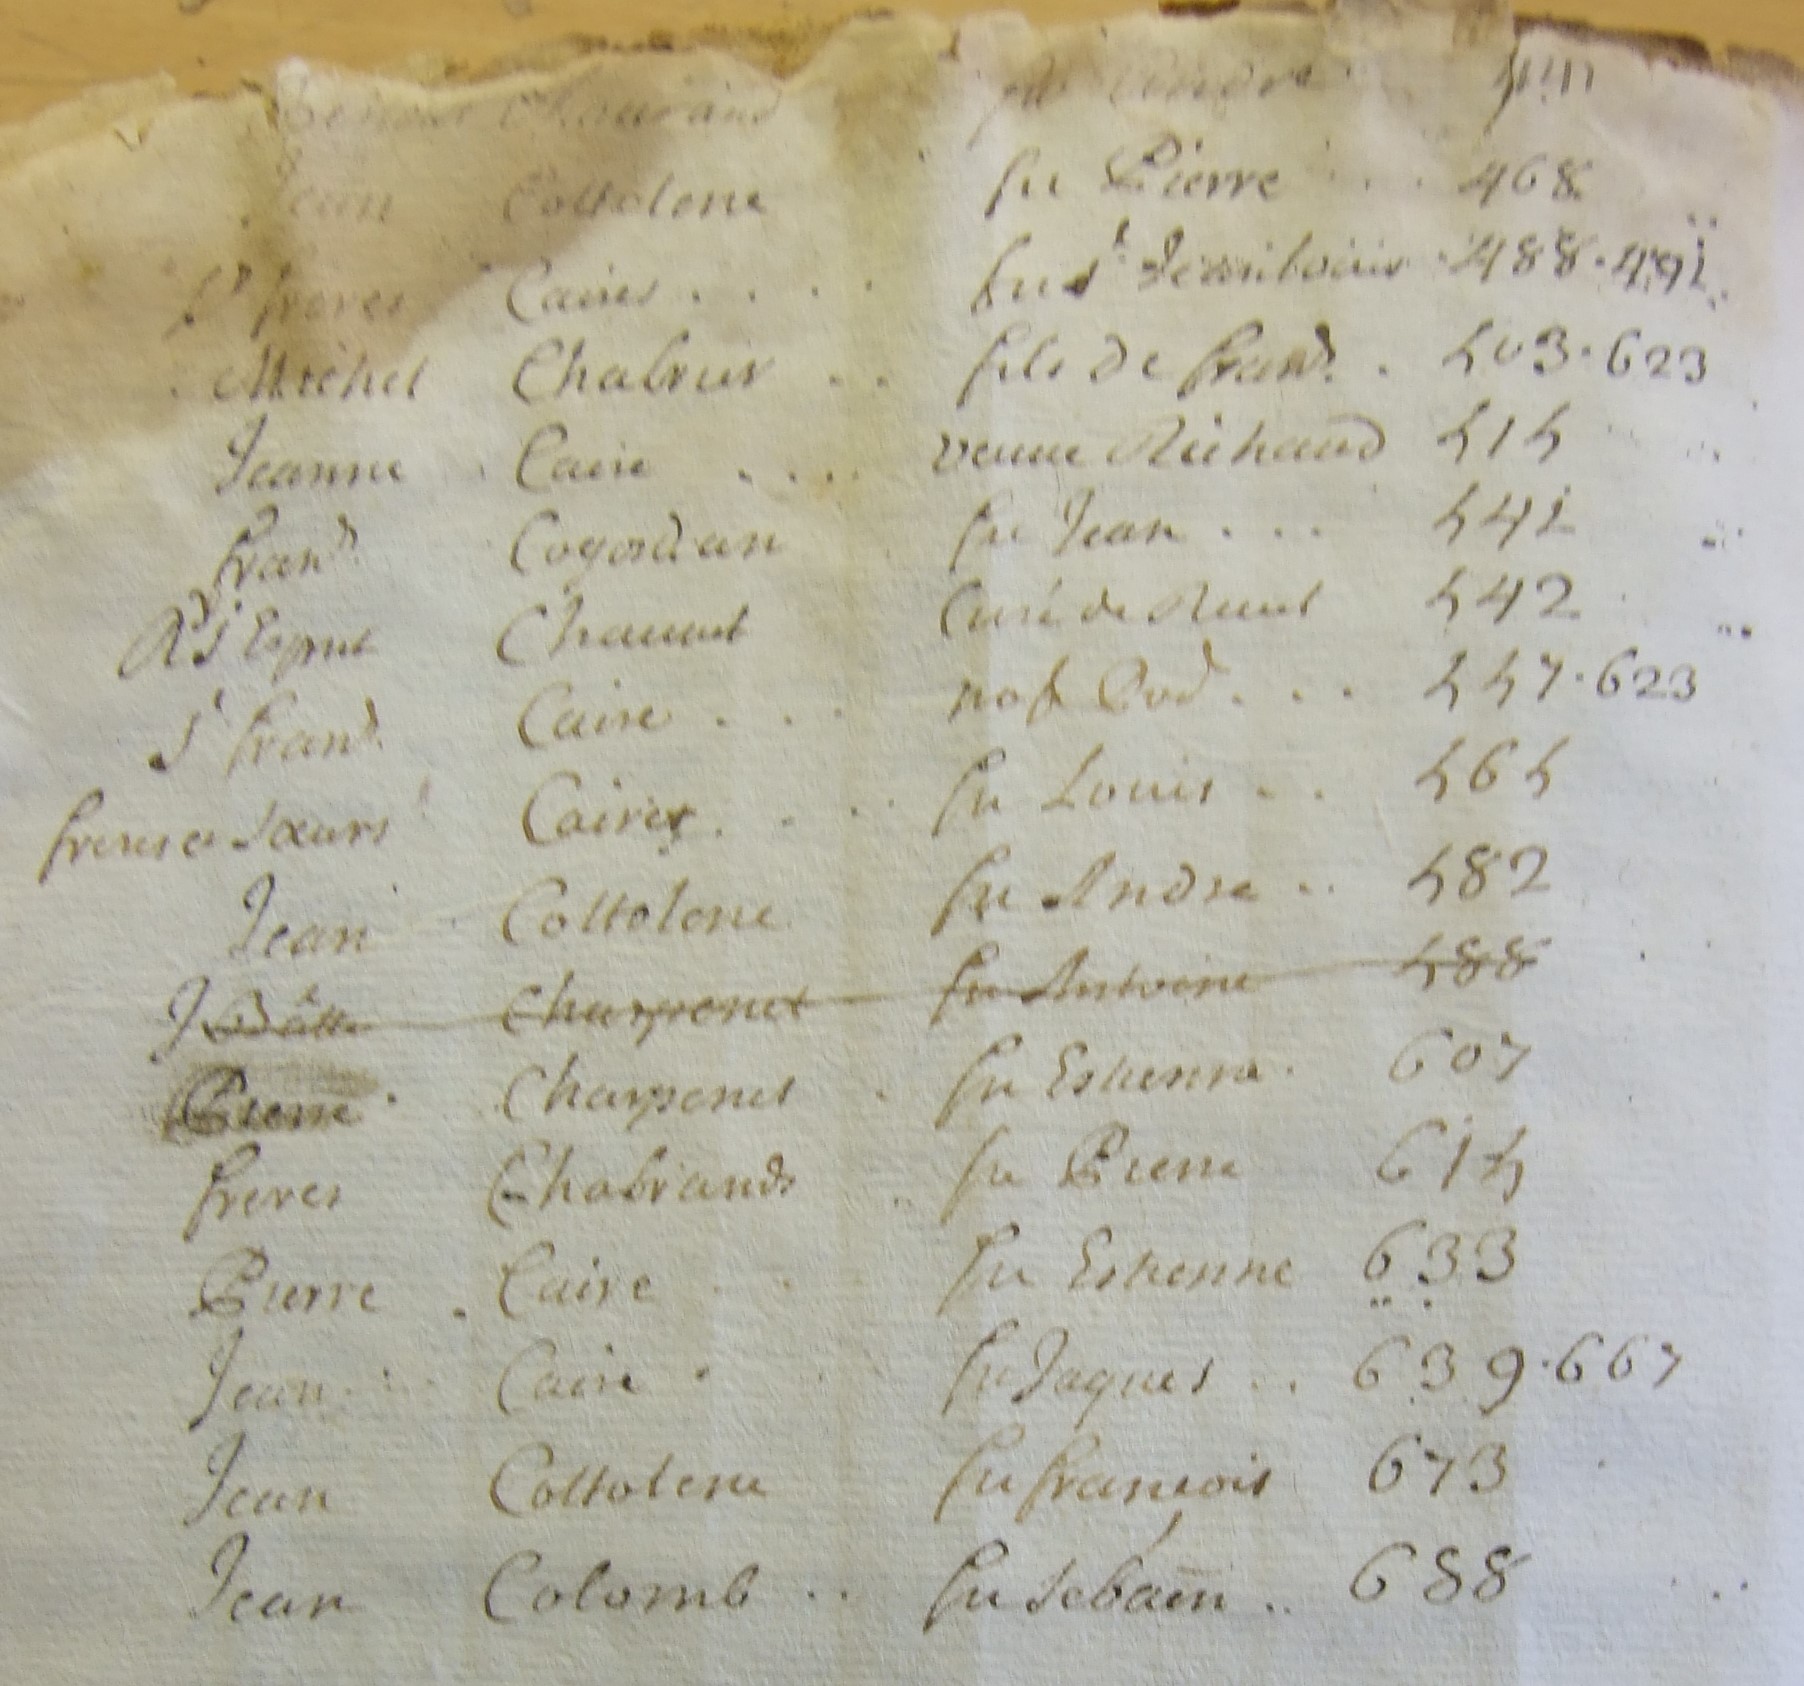 Chaurand fu André
Jean Cottolene fu Pierre 468
Srs freres Caires fu Sr Jean louis 488. 491
Michel Chabrier fils de frans. 503. 623
Jeanne Caire veuve Richaud 515
frans. Cogordan fu Jean 541
Rd Sr Esprit Chauvet Curé de 542
Sr frans. Caire 557. 623
freres et sœurs Caires fu Louis 565
Jean Cottolene fu André 582
J Bâtte Charpenet fu Antoine 588
Pierre Charpenet fu Estienne 607
freres Chabrands fu Pierre 615
Pierre Caire fu Estienne 633
Jean Caire fu Jaques 639. 667
Jean Cottolene fu francois 673
Jean Colomb fu Sebāen 688